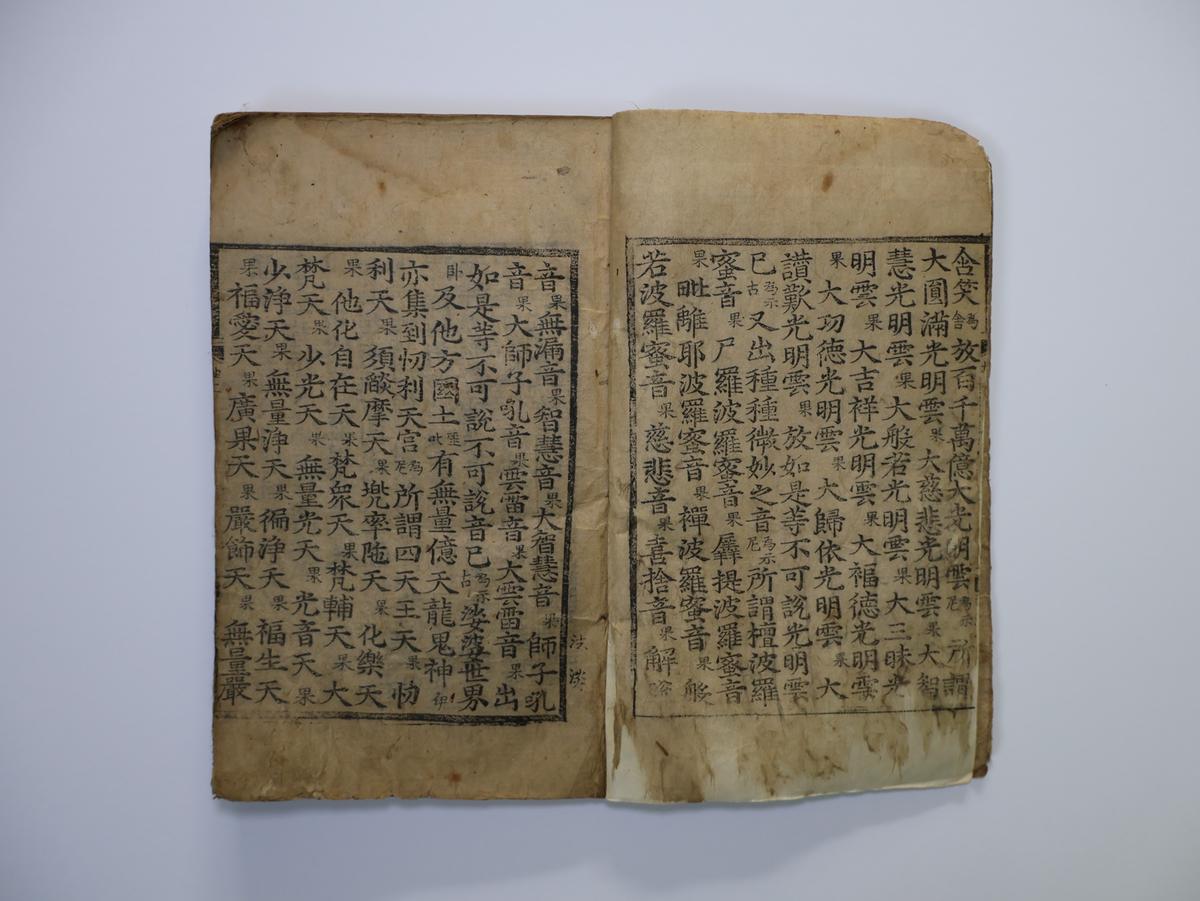 含笑為舍放百千萬億大光明雲為示尼所謂
大圓滿光明雲果大慈悲光明雲果大智
慧光明雲果大般若光明雲果大三昧光
明雲果大吉祥光明雲果大福德光明雲
果大功德光明雲果大歸依光明雲果大
讃歎光明雲果放如是等不可說光明雲
已為示古又出種種微妙之音為示尼所謂檀波羅
蜜音果尸羅波羅蜜音果羼提波羅蜜音
果毗離耶波羅蜜音果禪波羅蜜音果般
若波羅蜜音果慈悲音果喜捨音果解
音果無漏音果智慧音果大智慧音果師子吼
音果大師子吼音果雲雷音果大雲雷音果出
如是等不可說不可說音已為示古娑婆世界
卧及他方國土叱有無量億天龍鬼神
亦集到忉利天宮為尼所謂四天王天果忉
利天果須燄摩天果兜率陁天果化樂天
果他化自在天果梵衆天果梵輔天果大
梵天果少光天果無量光天果光音天果
少淨天果無量淨天果徧淨天果福生天
果福愛天果廣果天果嚴飾天果無量嚴